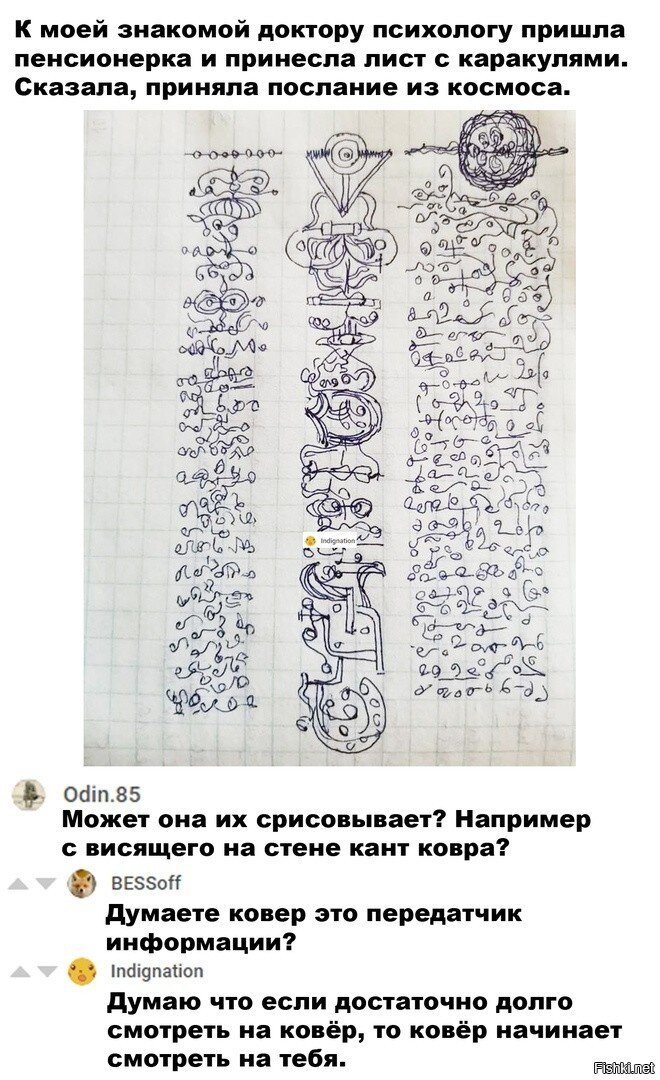 К моей знакомой доктору психологу пришла
пенсионерка и принесла лист с каракулями.
Сказала, приняла послание из космоса.
Indignation
Odin.85
Может она их срисовывает? Например
с висящего на стене кант ковра?
BESSoff
Думаете ковер это передатчик
информации?
Indignation
Думаю что если достаточно долго
смотреть на ковёр, то ковёр начинает
смотреть на тебя.
Fishki.net